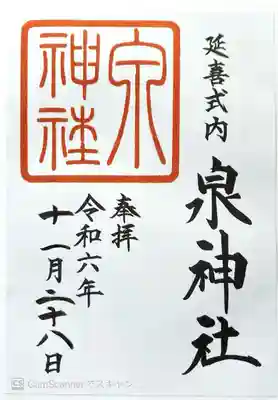 延喜式内
泉神社
奉拝
令和六年
十一月二十八日
泉
神社
CS CamScanner でスキャン